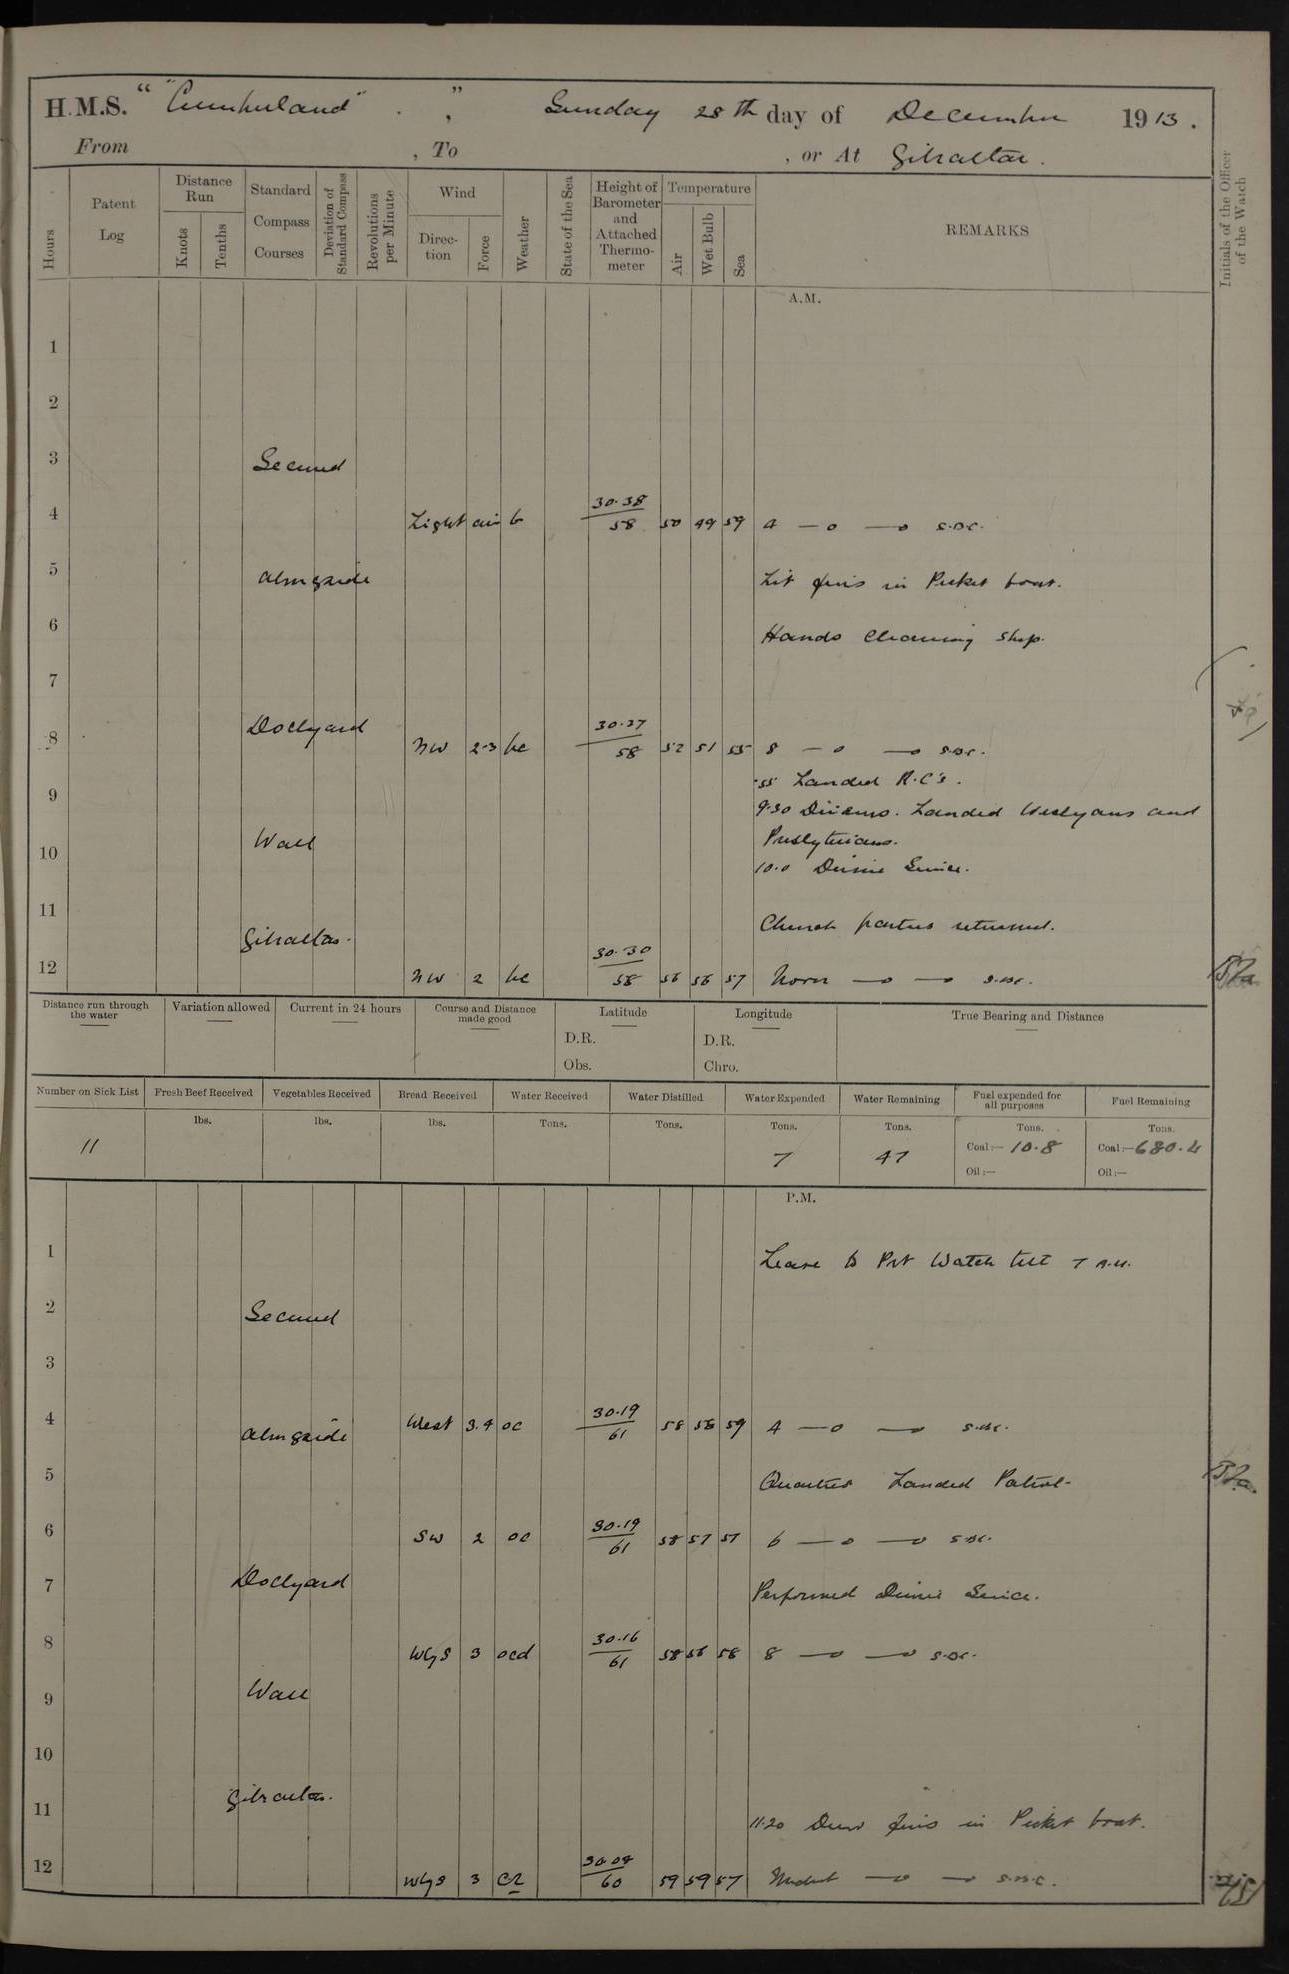 H.M.S. "Cumberland", Sunday 28th day of December 1913.
From , To , or At Gibraltar.
Hours
Patent Log
Distance Run
Knots
Tenths
Standard Compass Courses
Deviation of Standard Compass
Revolutions per Minute
Wind
Direction
Force
Weather
State of the Sea
Height of Barometer and Attached Thermometer
Temperature
Air
Wet Bulb
Sea
REMARKS
Initials of the Officer of the Watch
A.M.
1
2
3 Secured
4 Light air b 30.38 58 50 49 59 4 —o —o s.o.c.
5 alongside Lit fires in Picket boat.
6 Hands cleaning ship.
7
Dockyard
8 NW 2-3 bc 30.27 58 52 51 55 8 —o —o s.o.c.
.55 Landed R.C's.
9
9.30 Divisions. Landed Wesleyans and
Wall Presbyterians.
10
10.0 Divine Service.
11 Church parties returned.
Gibraltar.
12 NW 2 bc 30.30 58 56 56 57 Noon —o —o s.o.c.
Distance run through the water
Variation allowed
Current in 24 hours
Course and Distance made good
Latitude
D.R.
Obs.
Longitude
D.R.
Chro.
True Bearing and Distance
Number on Sick List
Fresh Beef Received
Vegetables Received
Bread Received
Water Received
Water Distilled
Water Expended
Water Remaining
Fuel expended for all purposes
Fuel Remaining
lbs. lbs. lbs. Tons. Tons. Tons. Tons. Tons. Tons.
11 7 47 Coal:— 10.8 Coal:— 680.4
Oil:— Oil:—
P.M.
1 Leave to Port Watch till 7 A.M.
2 Secured
3
4 West 3.4 oc 30.19 61 58 56 59 4 —o —o s.o.c.
alongside
5 Quarters Landed Patrol-
6 SW 2 oc 30.19 61 58 57 57 6 —o —o s.o.c.
7 Dockyard Performed Divine Service.
8 WbyS 3 ocd 30.16 61 58 56 58 8 —o —o s.o.c.
9 Wall
10
11 Gibraltar.
11.20 Drew fires in Picket boat.
12 WbyS 3 30.08 60 59 59 57 Midnt —o —o s.o.c.